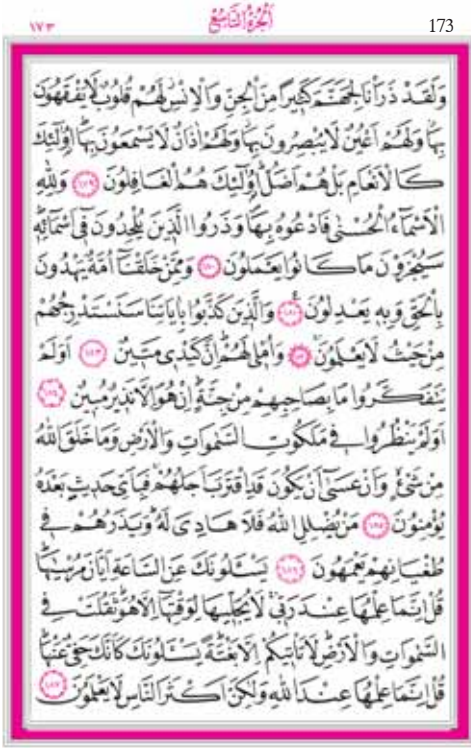 ١٧٣ اَلْجُزْءُ التَّاسِعُ 173
وَلَقَدْ ذَرَأْنَا لِجَهَنَّمَ كَثِيرًا مِنَ الْجِنِّ وَالْاِنْسِ لَهُمْ قُلُوبٌ لَا يَفْقَهُونَ
بِهَا وَلَهُمْ اَعْيُنٌ لَا يُبْصِرُونَ بِهَا وَلَهُمْ اٰذَانٌ لَا يَسْمَعُونَ بِهَا اُو۬لٰٓئِكَ
كَالْاَنْعَامِ بَلْ هُمْ اَضَلُّ اُو۬لٰٓئِكَ هُمُ الْغَافِلُونَ ﴿١٧٩﴾ وَلِلّٰهِ
الْاَسْمَٓاءُ الْحُسْنٰى فَادْعُوهُ بِهَا وَذَرُوا الَّذِينَ يُلْحِدُونَ فِٓى اَسْمَٓائِهِ
سَيُجْزَوْنَ مَا كَانُوا يَعْمَلُونَ ﴿١٨٠﴾ وَمِمَّنْ خَلَقْنَٓا اُمَّةٌ يَهْدُونَ
بِالْحَقِّ وَبِهِ يَعْدِلُونَ ﴿١٨١﴾ وَالَّذِينَ كَذَّبُوا بِاٰيَاتِنَا سَنَسْتَدْرِجُهُمْ
مِنْ حَيْثُ لَا يَعْلَمُونَ ﴿١٨٢﴾ وَاُمْلِى لَهُمْ اِنَّ كَيْدِى مَتِينٌ ﴿١٨٣﴾ اَوَلَمْ
يَتَفَكَّرُوا مَا بِصَاحِبِهِمْ مِنْ جِنَّةٍ اِنْ هُوَ اِلَّا نَذِيرٌ مُبِينٌ ﴿١٨٤﴾
اَوَلَمْ يَنْظُرُوا فِى مَلَكُوتِ السَّمٰوَاتِ وَالْاَرْضِ وَمَا خَلَقَ اللّٰهُ
مِنْ شَىْءٍ وَاَنْ عَسٰٓى اَنْ يَكُونَ قَدِ اقْتَرَبَ اَجَلُهُمْ فَبِاَىِّ حَدِيثٍ بَعْدَهُ
يُؤْمِنُونَ ﴿١٨٥﴾ مَنْ يُضْلِلِ اللّٰهُ فَلَا هَادِىَ لَهُ وَيَذَرُهُمْ فِى
طُغْيَانِهِمْ يَعْمَهُونَ ﴿١٨٦﴾ يَسْـَٔلُونَكَ عَنِ السَّاعَةِ اَيَّانَ مُرْسٰيهَا
قُلْ اِنَّمَا عِلْمُهَا عِنْدَ رَبِّى لَا يُجَلِّيهَا لِوَقْتِهَٓا اِلَّا هُوَ ثَقُلَتْ فِى
السَّمٰوَاتِ وَالْاَرْضِ لَا تَأْتِيكُمْ اِلَّا بَغْتَةً يَسْـَٔلُونَكَ كَاَنَّكَ حَفِىٌّ عَنْهَا
قُلْ اِنَّمَا عِلْمُهَا عِنْدَ اللّٰهِ وَلٰكِنَّ اَكْثَرَ النَّاسِ لَا يَعْلَمُونَ ﴿١٨٧﴾